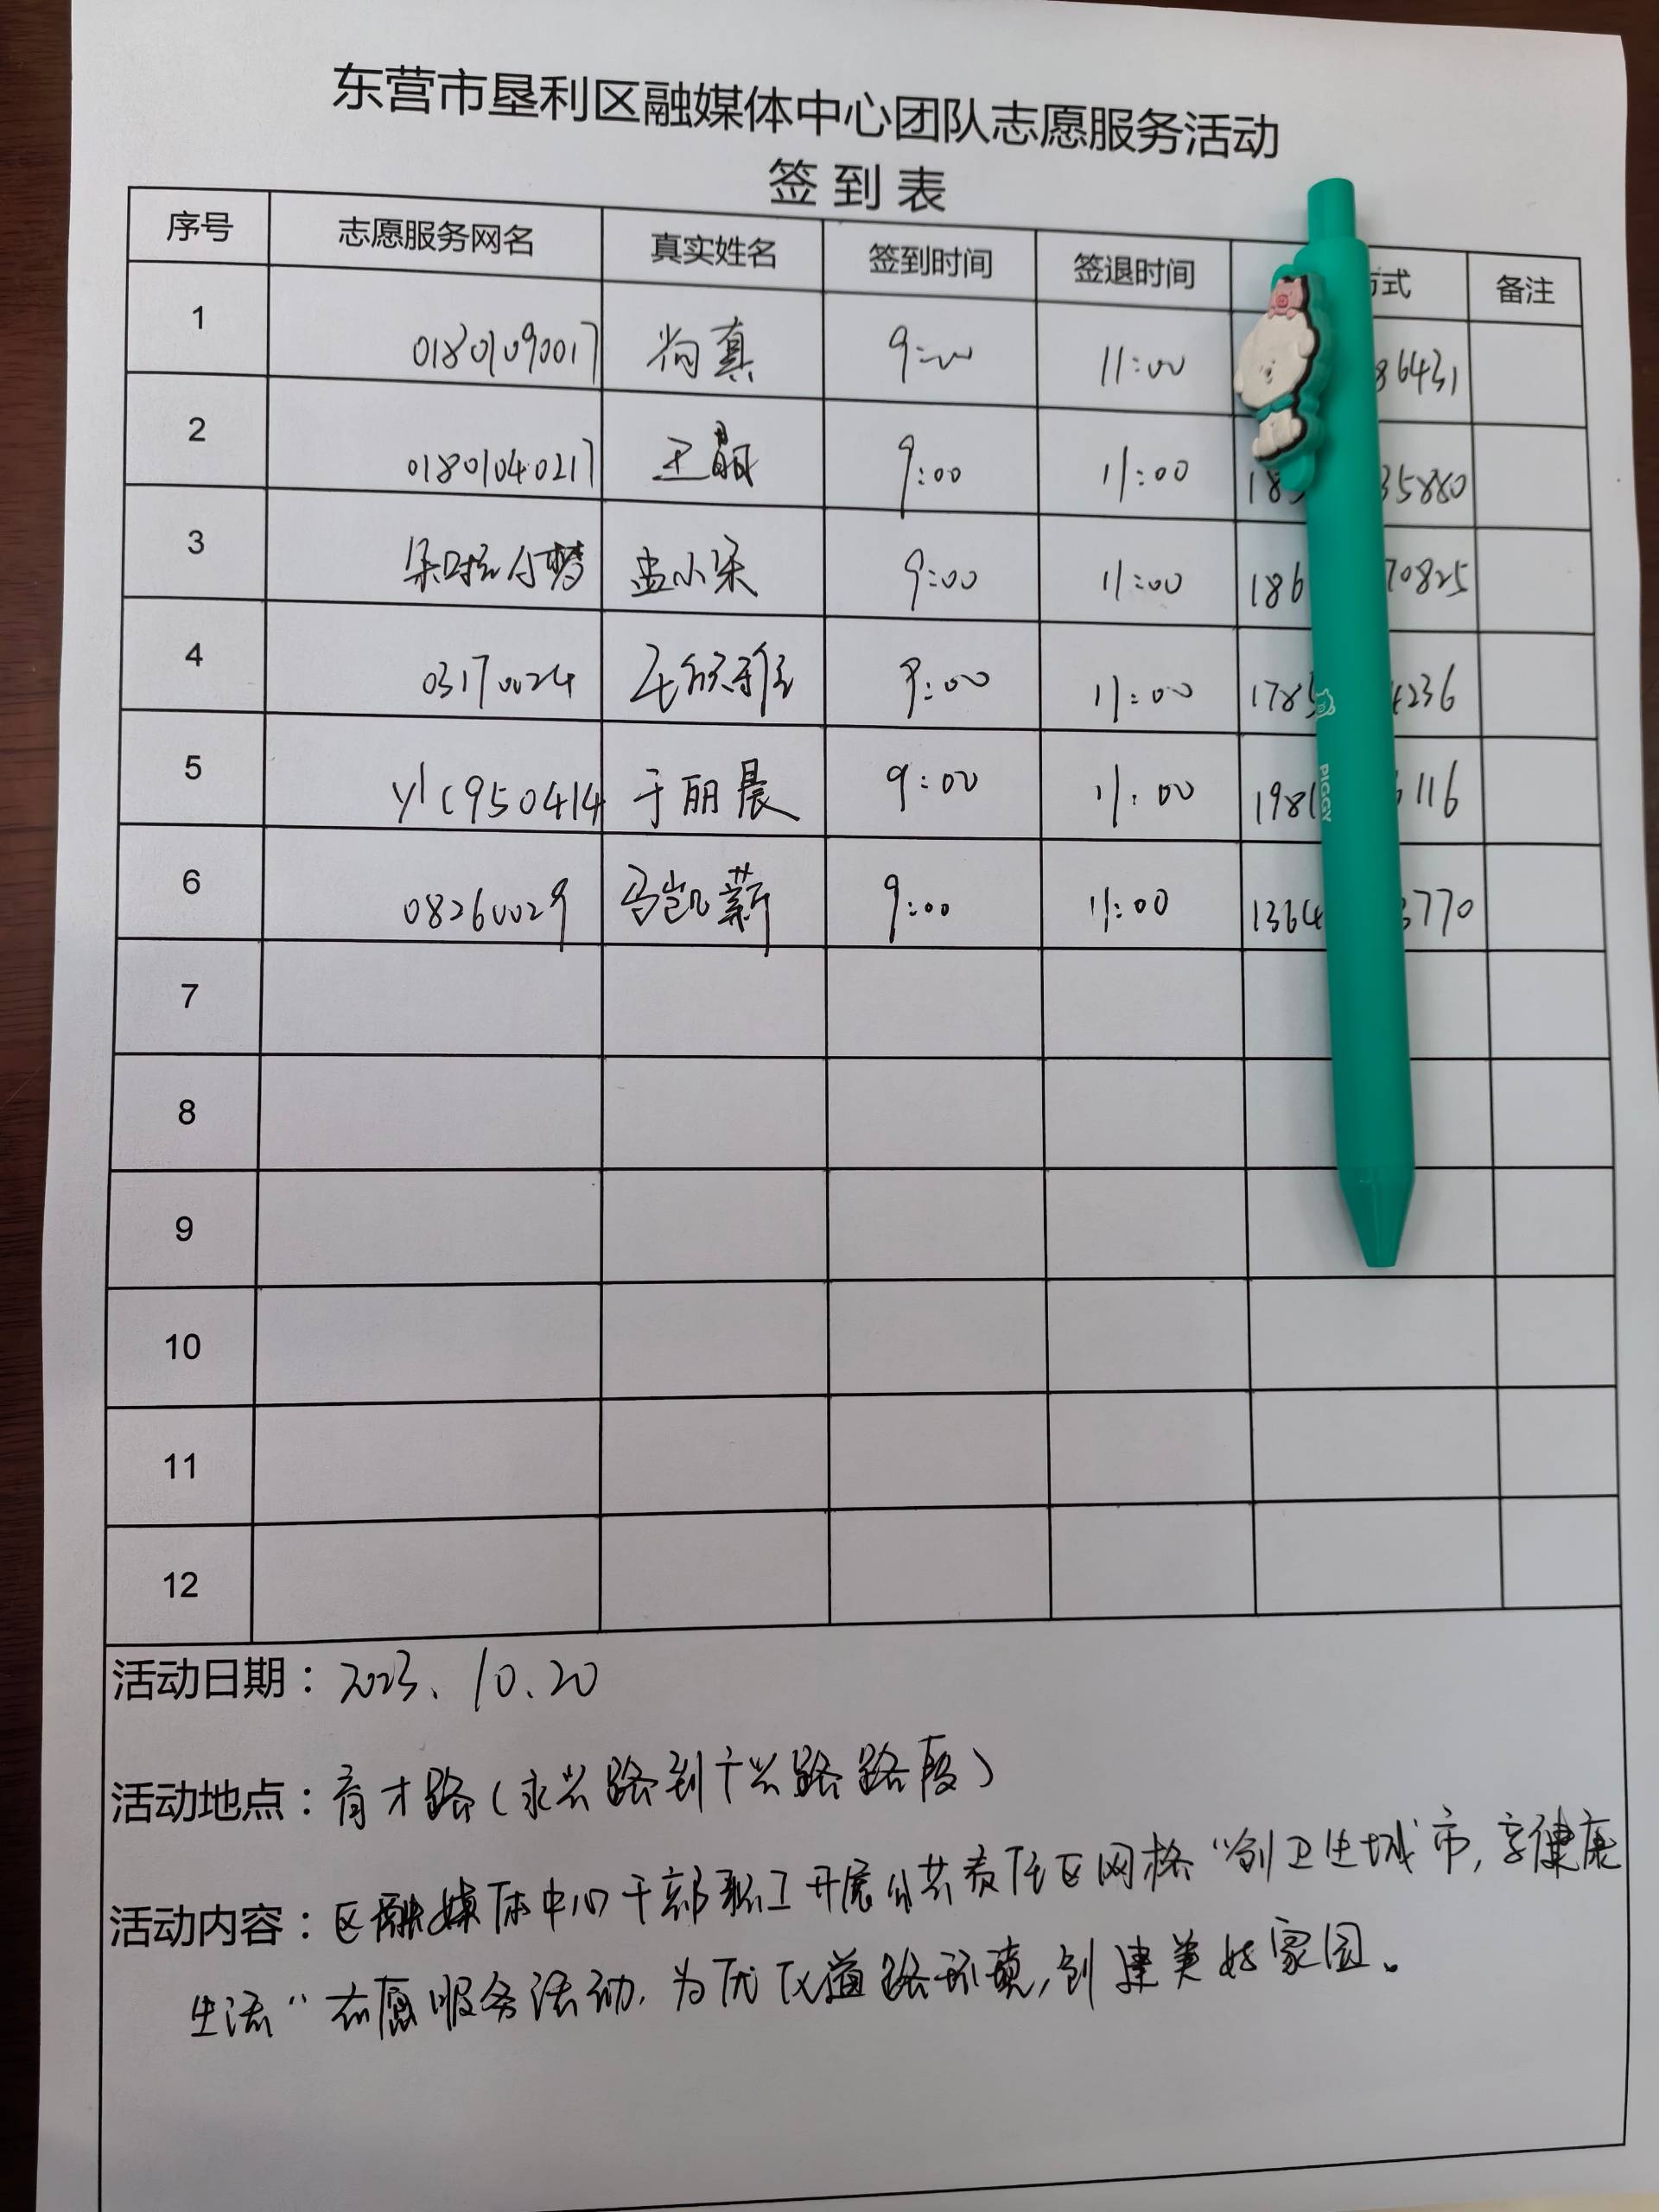 东营市垦利区融媒体中心团队志愿服务活动
签到表
序号 志愿服务网名 真实姓名 签到时间 签退时间 方式 备注
1 01801090017 尚真 9:00 11:00 86431
2 01801040217 王晶 9:00 11:00 185 35880
3 孟小朵 9:00 11:00 186 70825
4 03170024 9:00 11:00 1785 4236
5 ylc950414 于丽晨 9:00 11:00 1981 6116
6 08260029 马凯薪 9:00 11:00 1364 3770
7
8
9
10
11
12
PIGGY
活动日期：2023、10、20
活动地点：育才路（永兴路到广兴路路段）
活动内容：区融媒体中心干部职工开展公共责任区网格“创卫生城市，享健康
生活”志愿服务活动，为优化道路环境，创建美好家园。